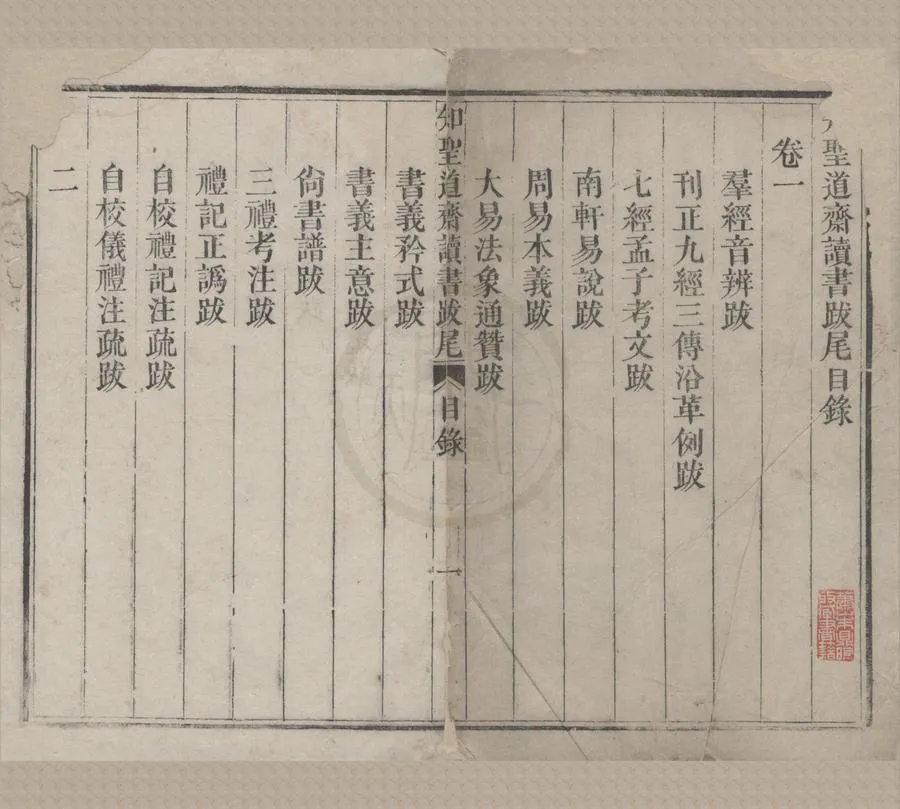 聖道齋讀書跋尾目錄
卷一
羣經音辨跋
刊正九經三傳沿革例跋
七經孟子考文跋
南軒易說跋
周易本義跋
大易法象通贊跋
知聖道齋讀書跋尾 目錄 一
書義矜式跋
書義主意跋
尙書譜跋
三禮考注跋
禮記正譌跋
自校禮記注疏跋
自校儀禮注疏跋
二